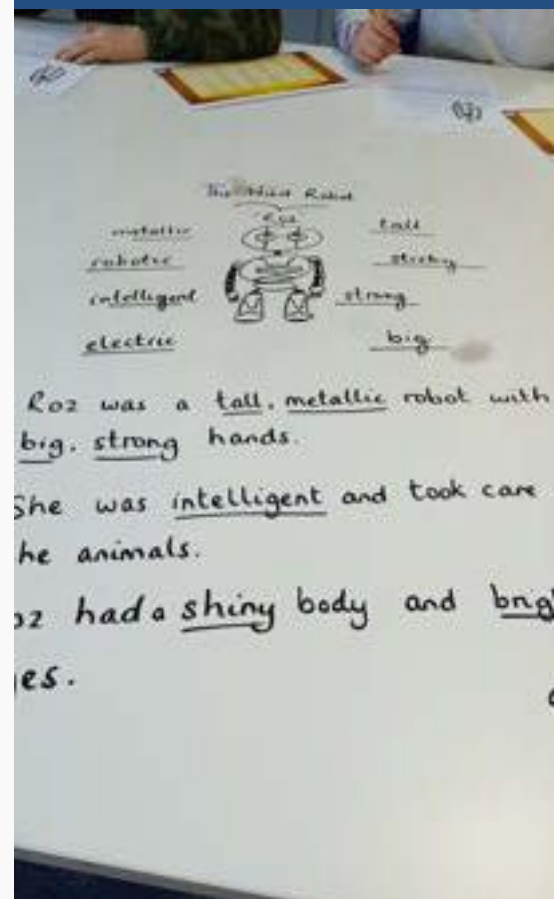 The Wild Robot
Roz
metallic
tall
robotic
sticky
intelligent
strong
electric
big
Roz was a tall, metallic robot with
big, strong hands.
She was intelligent and took care
he animals.
oz had a shiny body and brig
es.